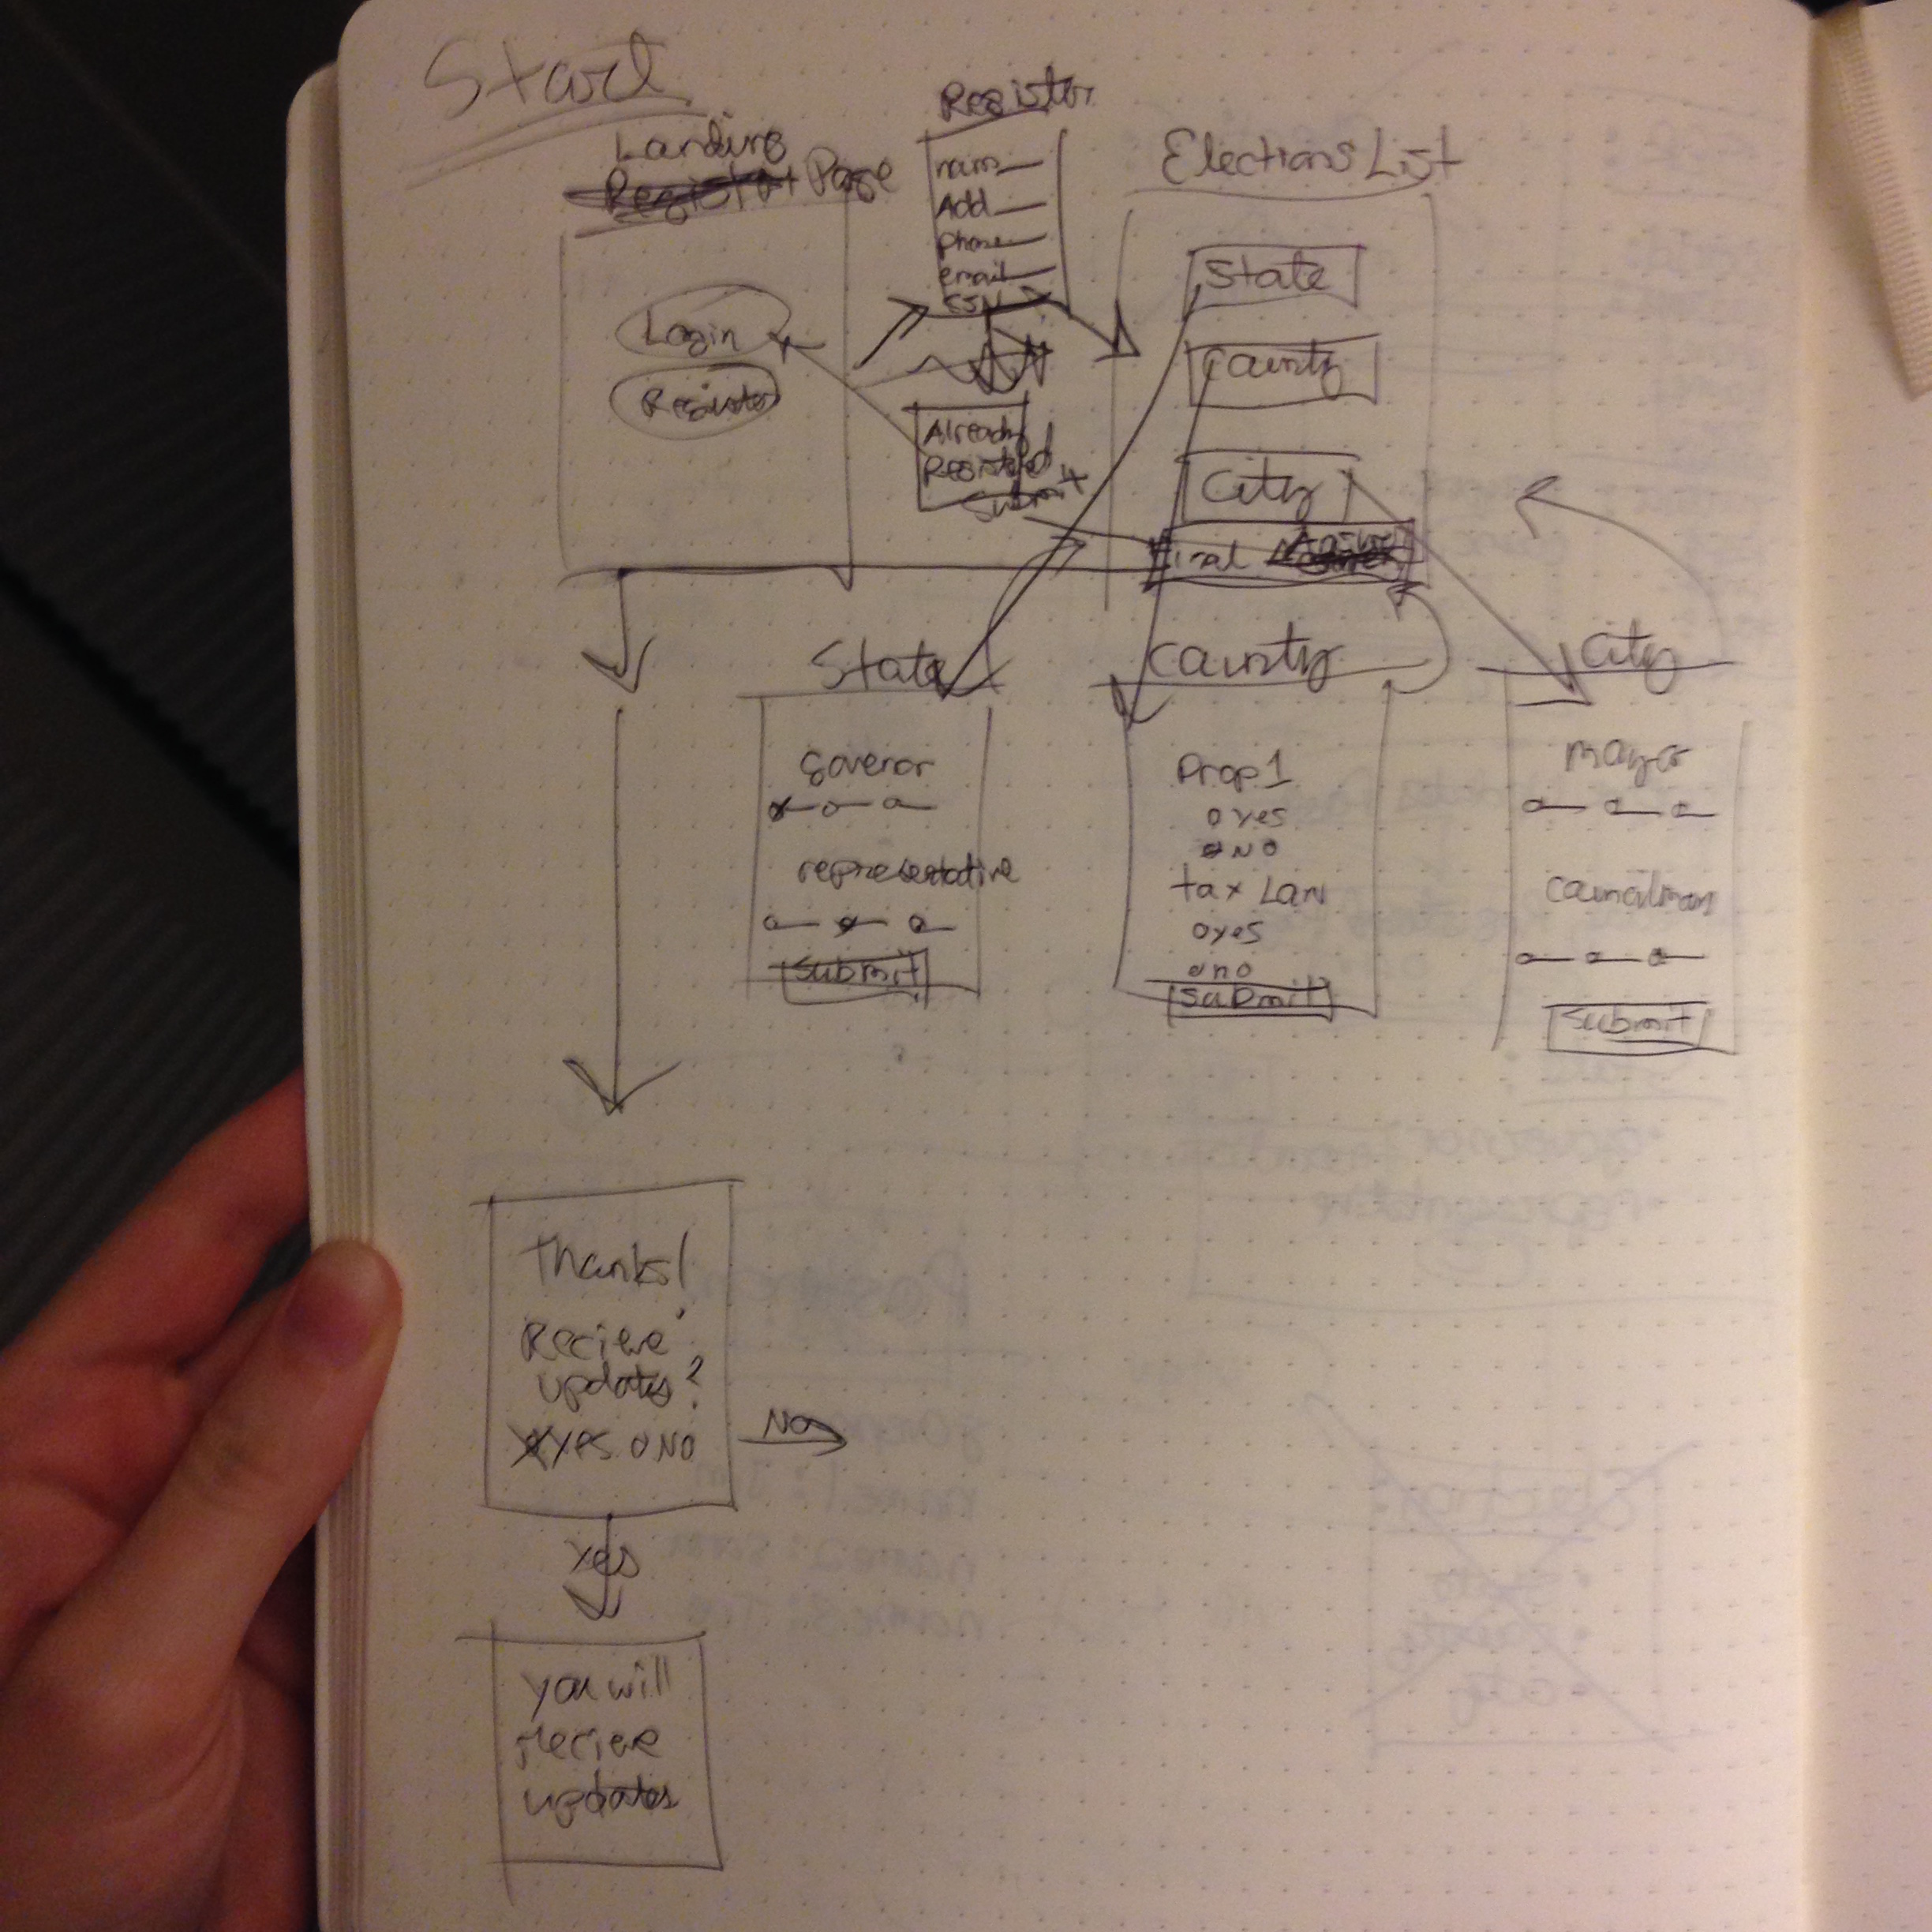 Start
Landing
Page
Login
Register
Register
name
Add
phone
email
SSN
Already
Registered
Submit
Elections List
State
County
City
Final
State
govenor
representative
Submit
County
Prop 1
o yes
o NO
tax LAW
o yes
o no
Submit
City
mayor
councilman
Submit
Thanks!
Recieve
updates?
YES O NO
NO
Yes
you will
recieve
updates